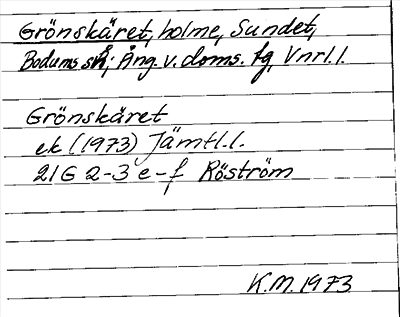 Grönskäret, holme, Sundet,
Bodums sn; Ång. v. doms. fg Vnrl.l.
Grönskäret
ek (1973) Jämtl.l.
21G 2-3 e-f Röström
K.M. 1973